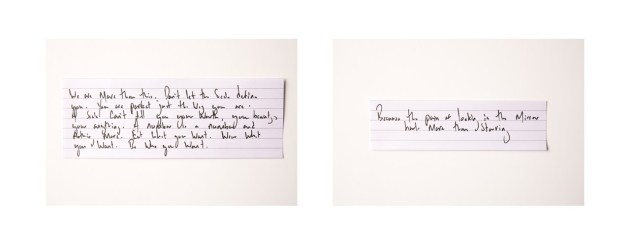 We are More than this. Don't let the Scale define
you. You are perfect just the way you are.
A Scale Can't tell you your Worth, your beauty,
your anything. A number is a number and
Nothing More. Eat what you Want. Wear What
you Want. Be Who you Want.
Because the pain of looking in the Mirror
hurts More than Starving